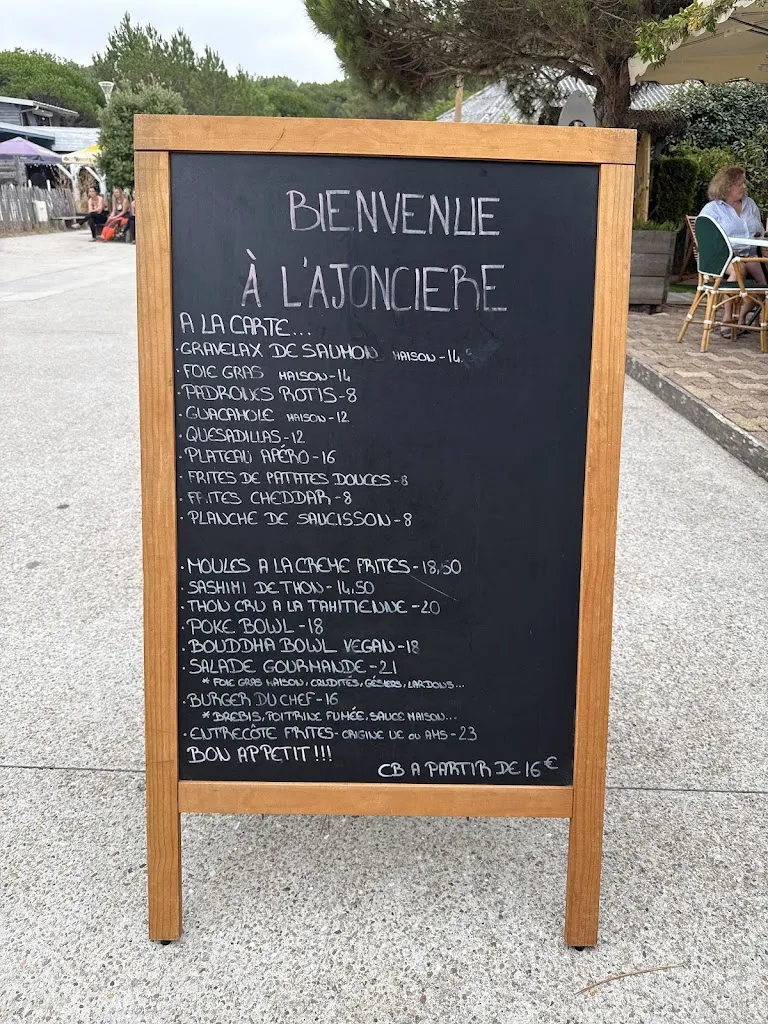 BIENVENUE
À L'AJONCIERE
A LA CARTE...
·GRAVELAX DE SAUMON MAISON-14.5
·FOIE GRAS MAISON-14
·PADRONES ROTIS-8
·GUACAMOLE MAISON-12
·QUESADILLAS-12
·PLATEAU APÉRO-16
·FRITES DE PATATES DOUCES-8
·FRITES CHEDDAR-8
·PLANCHE DE SAUCISSON-8
·MOULES A LA CREME FRITES-18,50
·SASHIMI DE THON-14.50
·THON CRU A LA TAHITIENNE-20
·POKE BOWL-18
·BOUDDHA BOWL VEGAN-18
·SALADE GOURMANDE-21
*FOIE GRAS MAISON, CRUDITÉS, GÉSIERS, LARDONS...
·BURGER DU CHEF-16
*BREBIS, POITRINE FUMÉE, SAUCE MAISON...
·ENTRECÔTE FRITES-ORIGINE UE ou AMS-23
BON APPETIT!!!
CB A PARTIR DE 16€